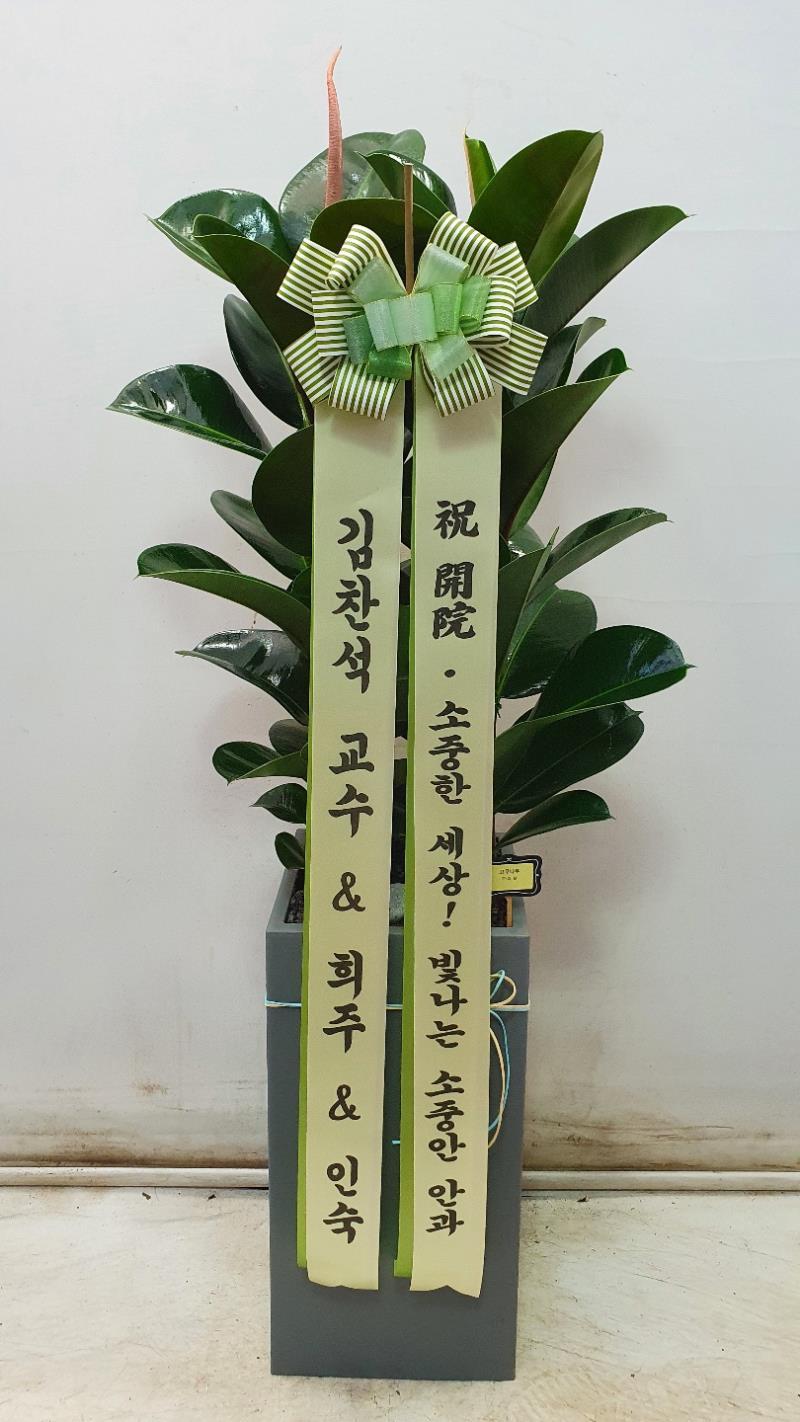 김찬석 교수 & 희주 & 인숙
祝 開院 · 소중한 세상! 빛나는 소중안 안과
고무나무